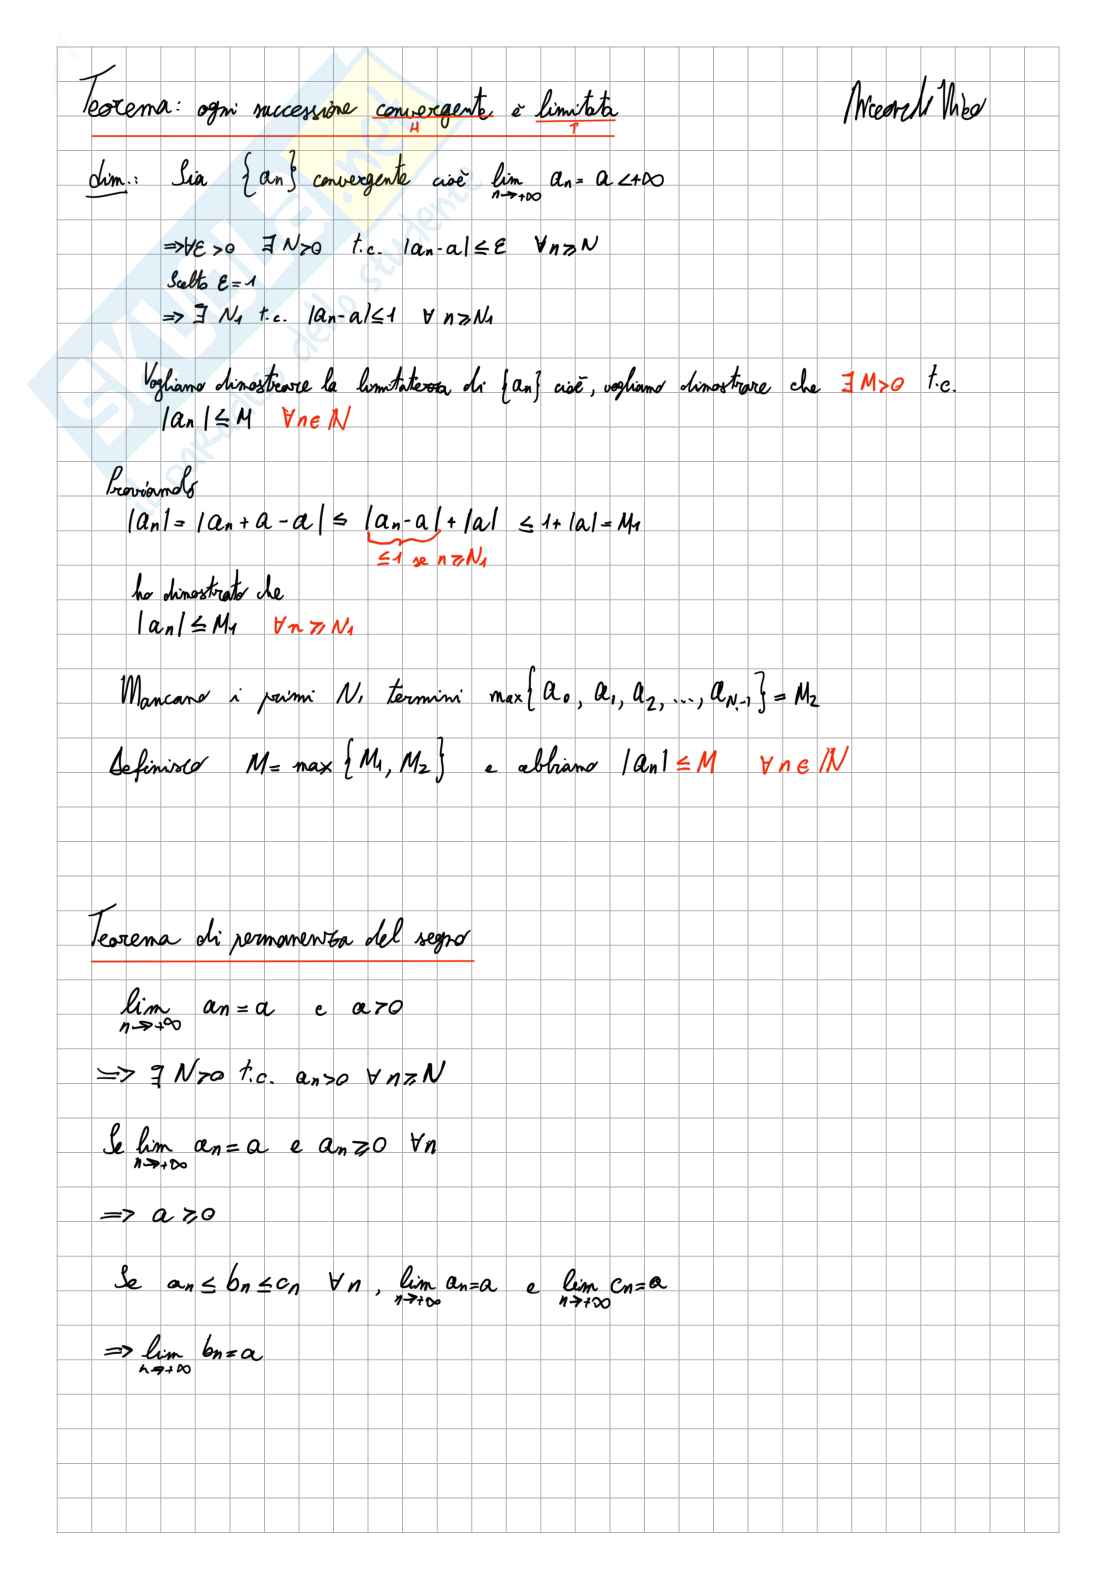 Teorema: ogni successione convergente è limitata
H T
dim.: Sia {an} convergente cioè lim n→+∞ an = a < +∞
⇒ ∀ε>0 ∃ N>0 t.c. |an-a| ≤ ε ∀n≥N
Scelto ε=1
⇒ ∃ N1 t.c. |an-a| ≤ 1 ∀ n≥N1
Vogliamo dimostrare la limitatezza di {an} cioè, vogliamo dimostrare che ∃ M>0 t.c.
|an| ≤ M ∀n∈ℕ
Proviamolo
|an| = |an + a - a| ≤ |an-a| + |a| ≤ 1+|a| = M1
≤1 se n≥N1
ho dimostrato che
|an| ≤ M1 ∀n ≥ N1
Mancano i primi N1 termini max{a0, a1, a2, ..., aN1-1} = M2
Definisco M = max {M1, M2} e abbiamo |an| ≤ M ∀n∈ℕ
Teorema di permanenza del segno
lim n→+∞ an = a e a>0
⇒ ∃ N>0 t.c. an>0 ∀n≥N
Se lim n→+∞ an = a e an≥0 ∀n
⇒ a ≥ 0
Se an ≤ bn ≤ cn ∀n, lim n→+∞ an=a e lim n→+∞ cn=a
⇒ lim n→+∞ bn = a